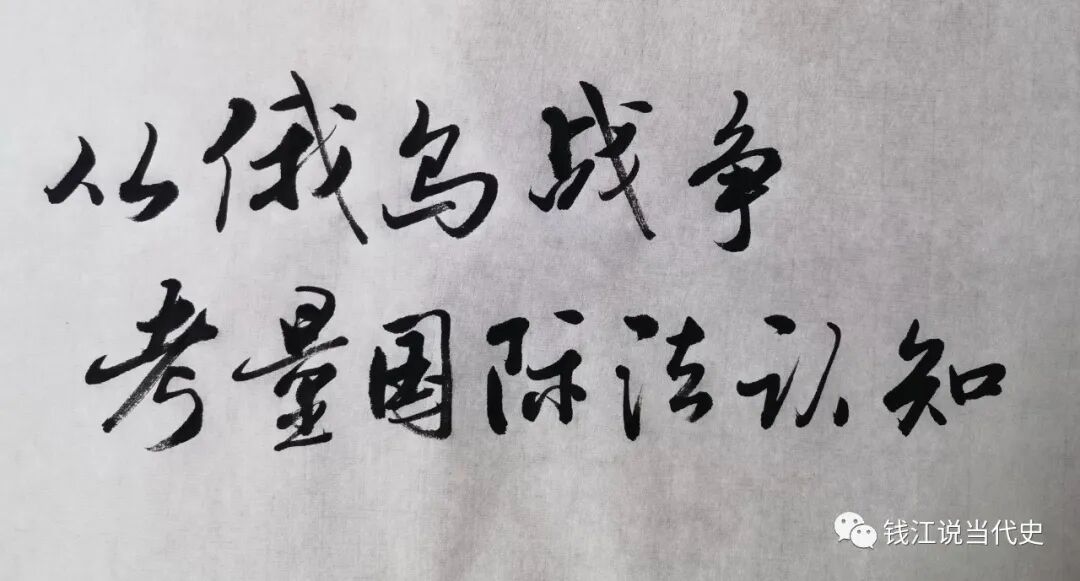 从俄乌战争
考量国际法认知
钱江说当代史